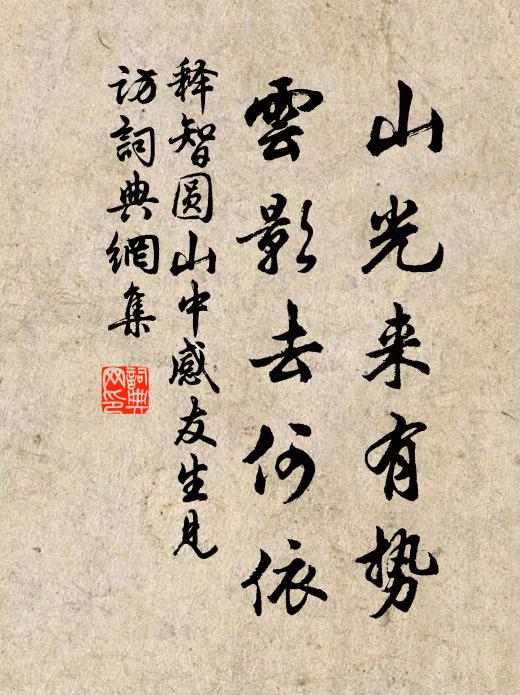 山光来有势
雲影去何依
释智圆山中感友生見
访詞典網集
詞典
网印